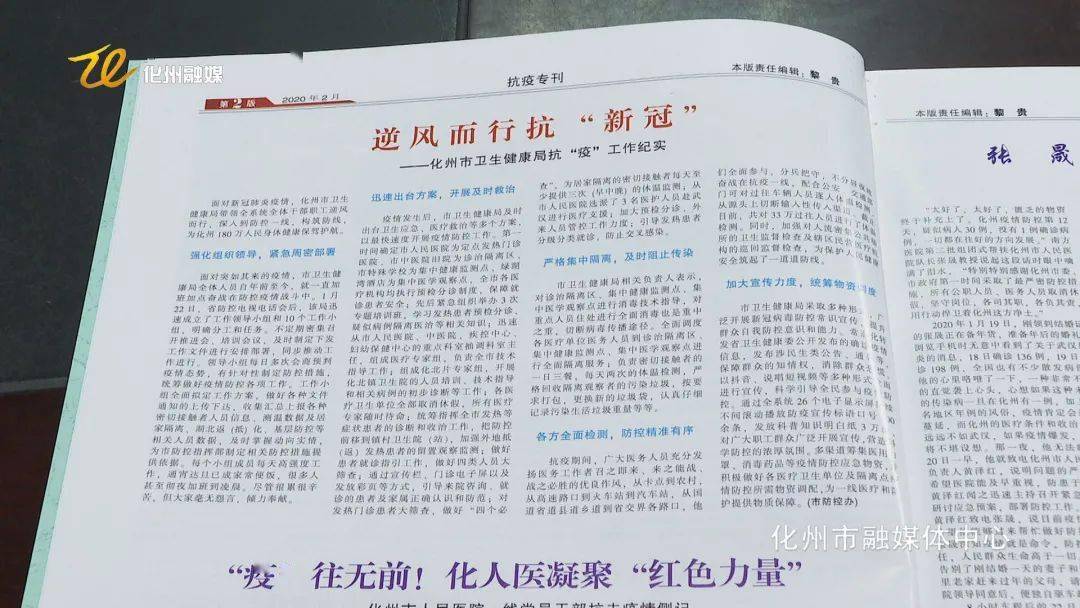 化州融媒
第2版
2020年2月
抗疫专刊
本版责任编辑：黎 贵
逆风而行抗“新冠”
——化州市卫生健康局抗“疫”工作纪实
面对新冠肺炎疫情，化州市卫生
健康局带领全系统全体干部职工逆风
而行、深入到防控一线，构筑防线，
为化州180万人民身体健康保驾护航。
强化组织领导，紧急周密部署
面对突如其来的疫情，市卫生健
康局全体人员自年前至今，就一直加
班加点奋战在防控疫情战斗中。1月
22日，省防控电视电话会后，该局迅
速成立了工作领导小组和10个工作小
组，明确分工和任务。不定期密集召
开推进会、培训会议，及时制定下发
工作文件进行安排部署，同步推动工
作进行。领导小组每日多次会商预判
疫情态势，有针对性制定防控措施，
统筹做好疫情防控各项工作。工作小
组全面拟定工作方案，做好各种文件
通知的上传下达，收集汇总上报各种
密切接触者人员信息、测温数据及居
家隔离、湖北返（抵）化、基层防控等
相关人员数据，及时掌握动向实情，
为市防控指挥部制定相关防控措施提
供依据。每个小组成员每天高强度工
作，通宵达旦已成家常便饭，很多人
甚至彻夜加班到凌晨。尽管很累很辛
苦，但大家毫无怨言，倾力奉献。
迅速出台方案，开展及时救治
疫情发生后，市卫生健康局及时
出台卫生应急、医疗救治等多个方案，
以最快速度开展疫情防控工作。第一
时间确定市人民医院为定点发热门诊
医院、市中医院旧院为诊治隔离区、
市特殊学校为集中健康监测点、绿朗
湾酒店为集中医学观察点，全市各医
疗机构均执行预检分诊制度，保障就
诊患者安全；先后紧急组织举办3次
专题培训班，学习发热患者预检分诊、
疑似病例隔离医治等相关知识；迅速
从市人民医院、中医院、疾控中心、
妇幼保健中心的重点科室抽调科室主
任，组成医疗专家组，负责全市技术
指导工作；组成化北片专家组，开展
化北镇卫生院的人员培训、技术指导
和相关病例的初步诊断等工作；各医
疗卫生单位全部取消休假，所有医疗
专家随时待命；统筹指挥全市发热等
症状患者的诊断和收治工作，把防控
前移到镇村卫生院（站），加强外地抵
（返）发热患者的留置观察监测；做好
患者就诊指引工作，做好四类人员大
筛查；通过宣传栏、门诊电子屏以及
发放彩页等方式，引导来院咨询、就
诊的患者及家属正确认识和防范；对
发热门诊患者大筛查，做好“四个必
查”，为居家隔离的密切接触者每天至
少提供三次（早中晚）的体温监测；从
市人民医院选派了3名医护人员赴武
汉进行医疗支援；加大预检分诊、外
来人员管控工作力度；引导发热患者
分级分类就诊，防止交叉感染。
严格集中隔离，及时阻止传染
市卫生健康局相关负责人表示，
对诊治隔离区、集中健康监测点、集
中医学观察点进行消毒技术指导，对
重点人员住处进行全面消毒也是重中
之重，切断病毒传播途径。全面调度
各医疗单位医务人员到诊治隔离区、
集中健康监测点、集中医学观察点进
行全面隔离服务；负责密切接触者的
一日三餐、每天两次的体温检测，严
格回收隔离观察者的污染垃圾，按要
求打包、更换新的垃圾袋，认真仔细
记录污染生活垃圾重量等等。
各方全面检测，防控精准有序
抗疫期间，广大医务人员充分发
扬医务工作者召之即来、来之能战、
战之必胜的优良作风，从卡点到农村，
从高速路口到火车站到汽车站，从国
道省道县道乡道到省交界各路口，他
们全面参与，分兵把守，不分昼夜
奋战在抗疫一线，配合公安
门可对过往车辆人员逐人体温
从源头上切断输入性传人渠道，截止
目前，共对33万过往人员进行了体温
检测。同时，加强对人流密集公共场
所的卫生监督检查及辖区民营医疗机
构的巡回监督检查，为保障群众健康
安全筑起了一道道防线。
加大宣传力度，统筹物资调度
市卫生健康局采取多种形式
泛开展新冠病毒防控常识宣传，提升
群众自我防控意识和能力。常态化转
发省卫生健康委公开发布的确诊病例
信息，发布涉民生类公告、通告等，
保障群众的知情权，消除群众恐慌。
以抖音、说唱短视频等多种形式广泛
进行宣传，科学引导全民参与疫情防
控。通过全系统26个电子显示屏每天
不间断滚动播放防疫宣传标语口号
余条，发放科普知识明白纸3万多份，
对广大职工群众广泛开展宣传，营造科
学防控的浓厚氛围。多渠道筹集医用口
罩、消毒药品等疫情防控应急物资，
积极做好各医疗卫生单位及隔离点疫
情防控所需物资调配，为一线医疗和监
护提供物质保障。（市防控办）
“疫 往无前！化人医凝聚“红色力量”
化州市人民医院一线党员干部抗击疫情侧记
本版责任编辑：黎 贵
张 晟
“太好了，太好了，匮乏的物资
终于补充上了。化州疫情防控第12
疑似病人30例，没有1例确诊病
例，一切都在往好的方向发展。”南方
化州市融媒体中心